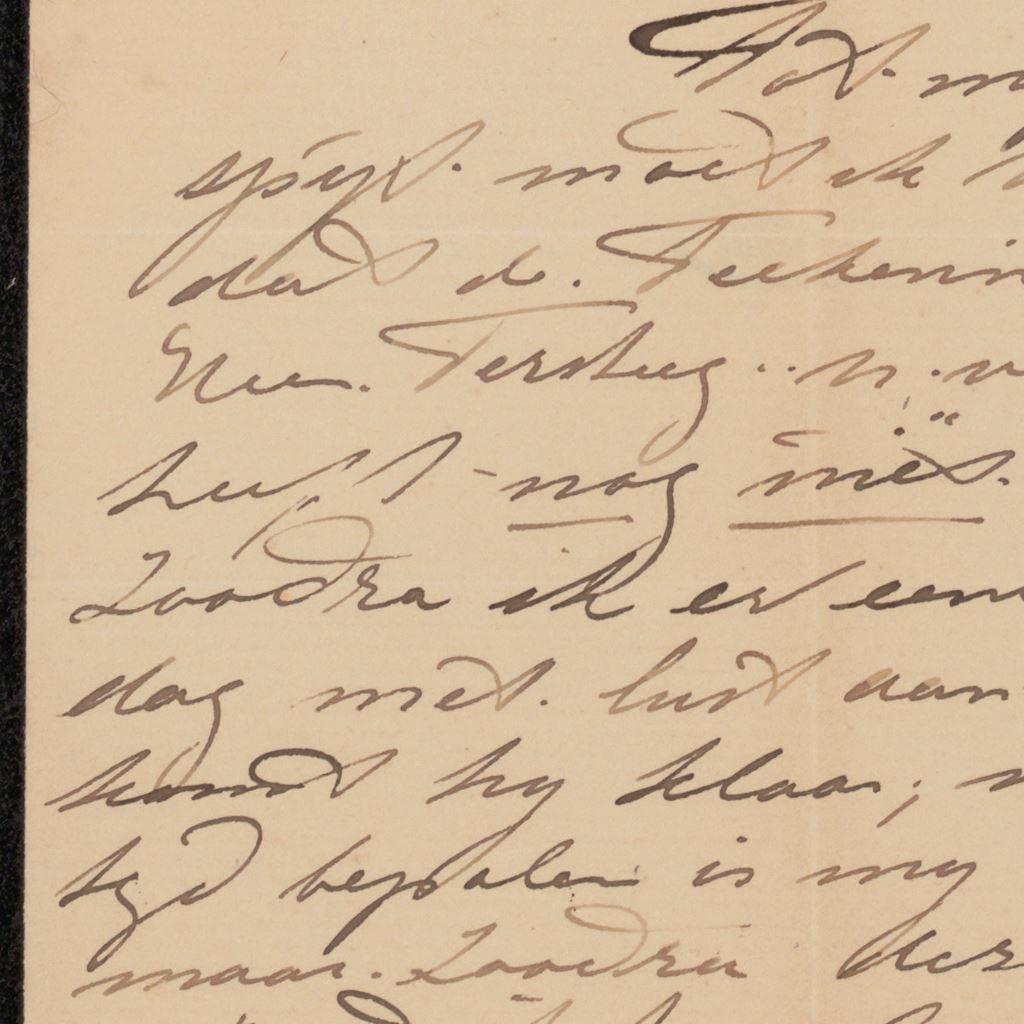 Tot m
spijt moet ik
dat de Teekenin
Hn. Tersteeg
heeft nog niet.
Zoodra ik er een
dag met lust aan
komt hy klaar,
tyd bepalen is my
maar. Zoodra der